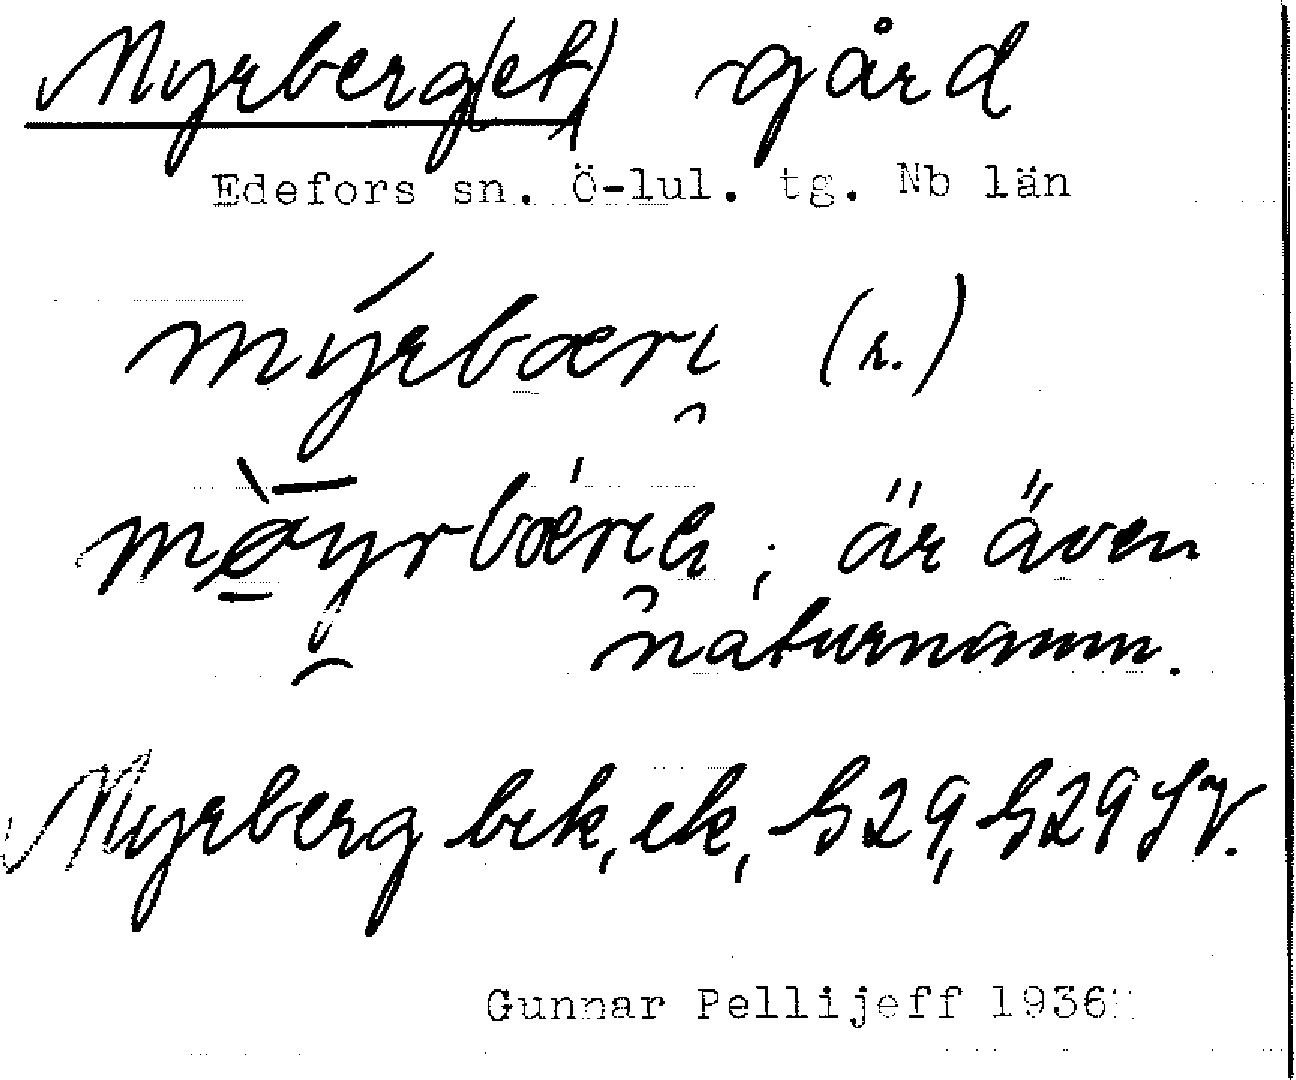 Myrberg(et) gård
Edefors sn. Ö-lul. tg. Nb län
mýrbæri (n.)
är även
naturnamn.
Myrberg bek, ek, h29, h29 SV.
Gunnar Pellijeff 1936